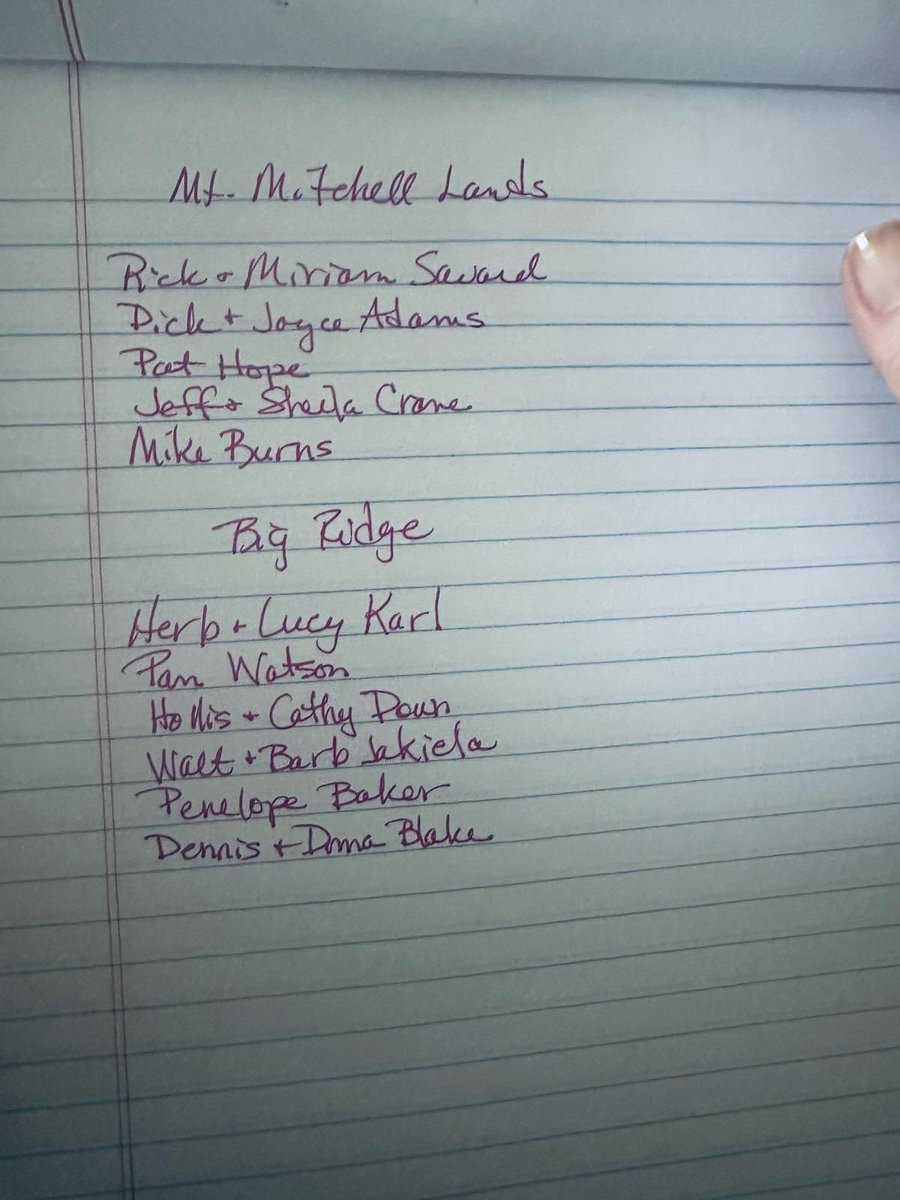 Mt. Mitchell Lands
Rick + Miriam Savard
Dick + Joyce Adams
Pat Hope
Jeff + Sheila Crane
Mike Burns
Big Ridge
Herb + Lucy Karl
Pam Watson
Hollis + Cathy
Walt + Barb Jakiela
Penelope Baker
Dennis + Donna Blake